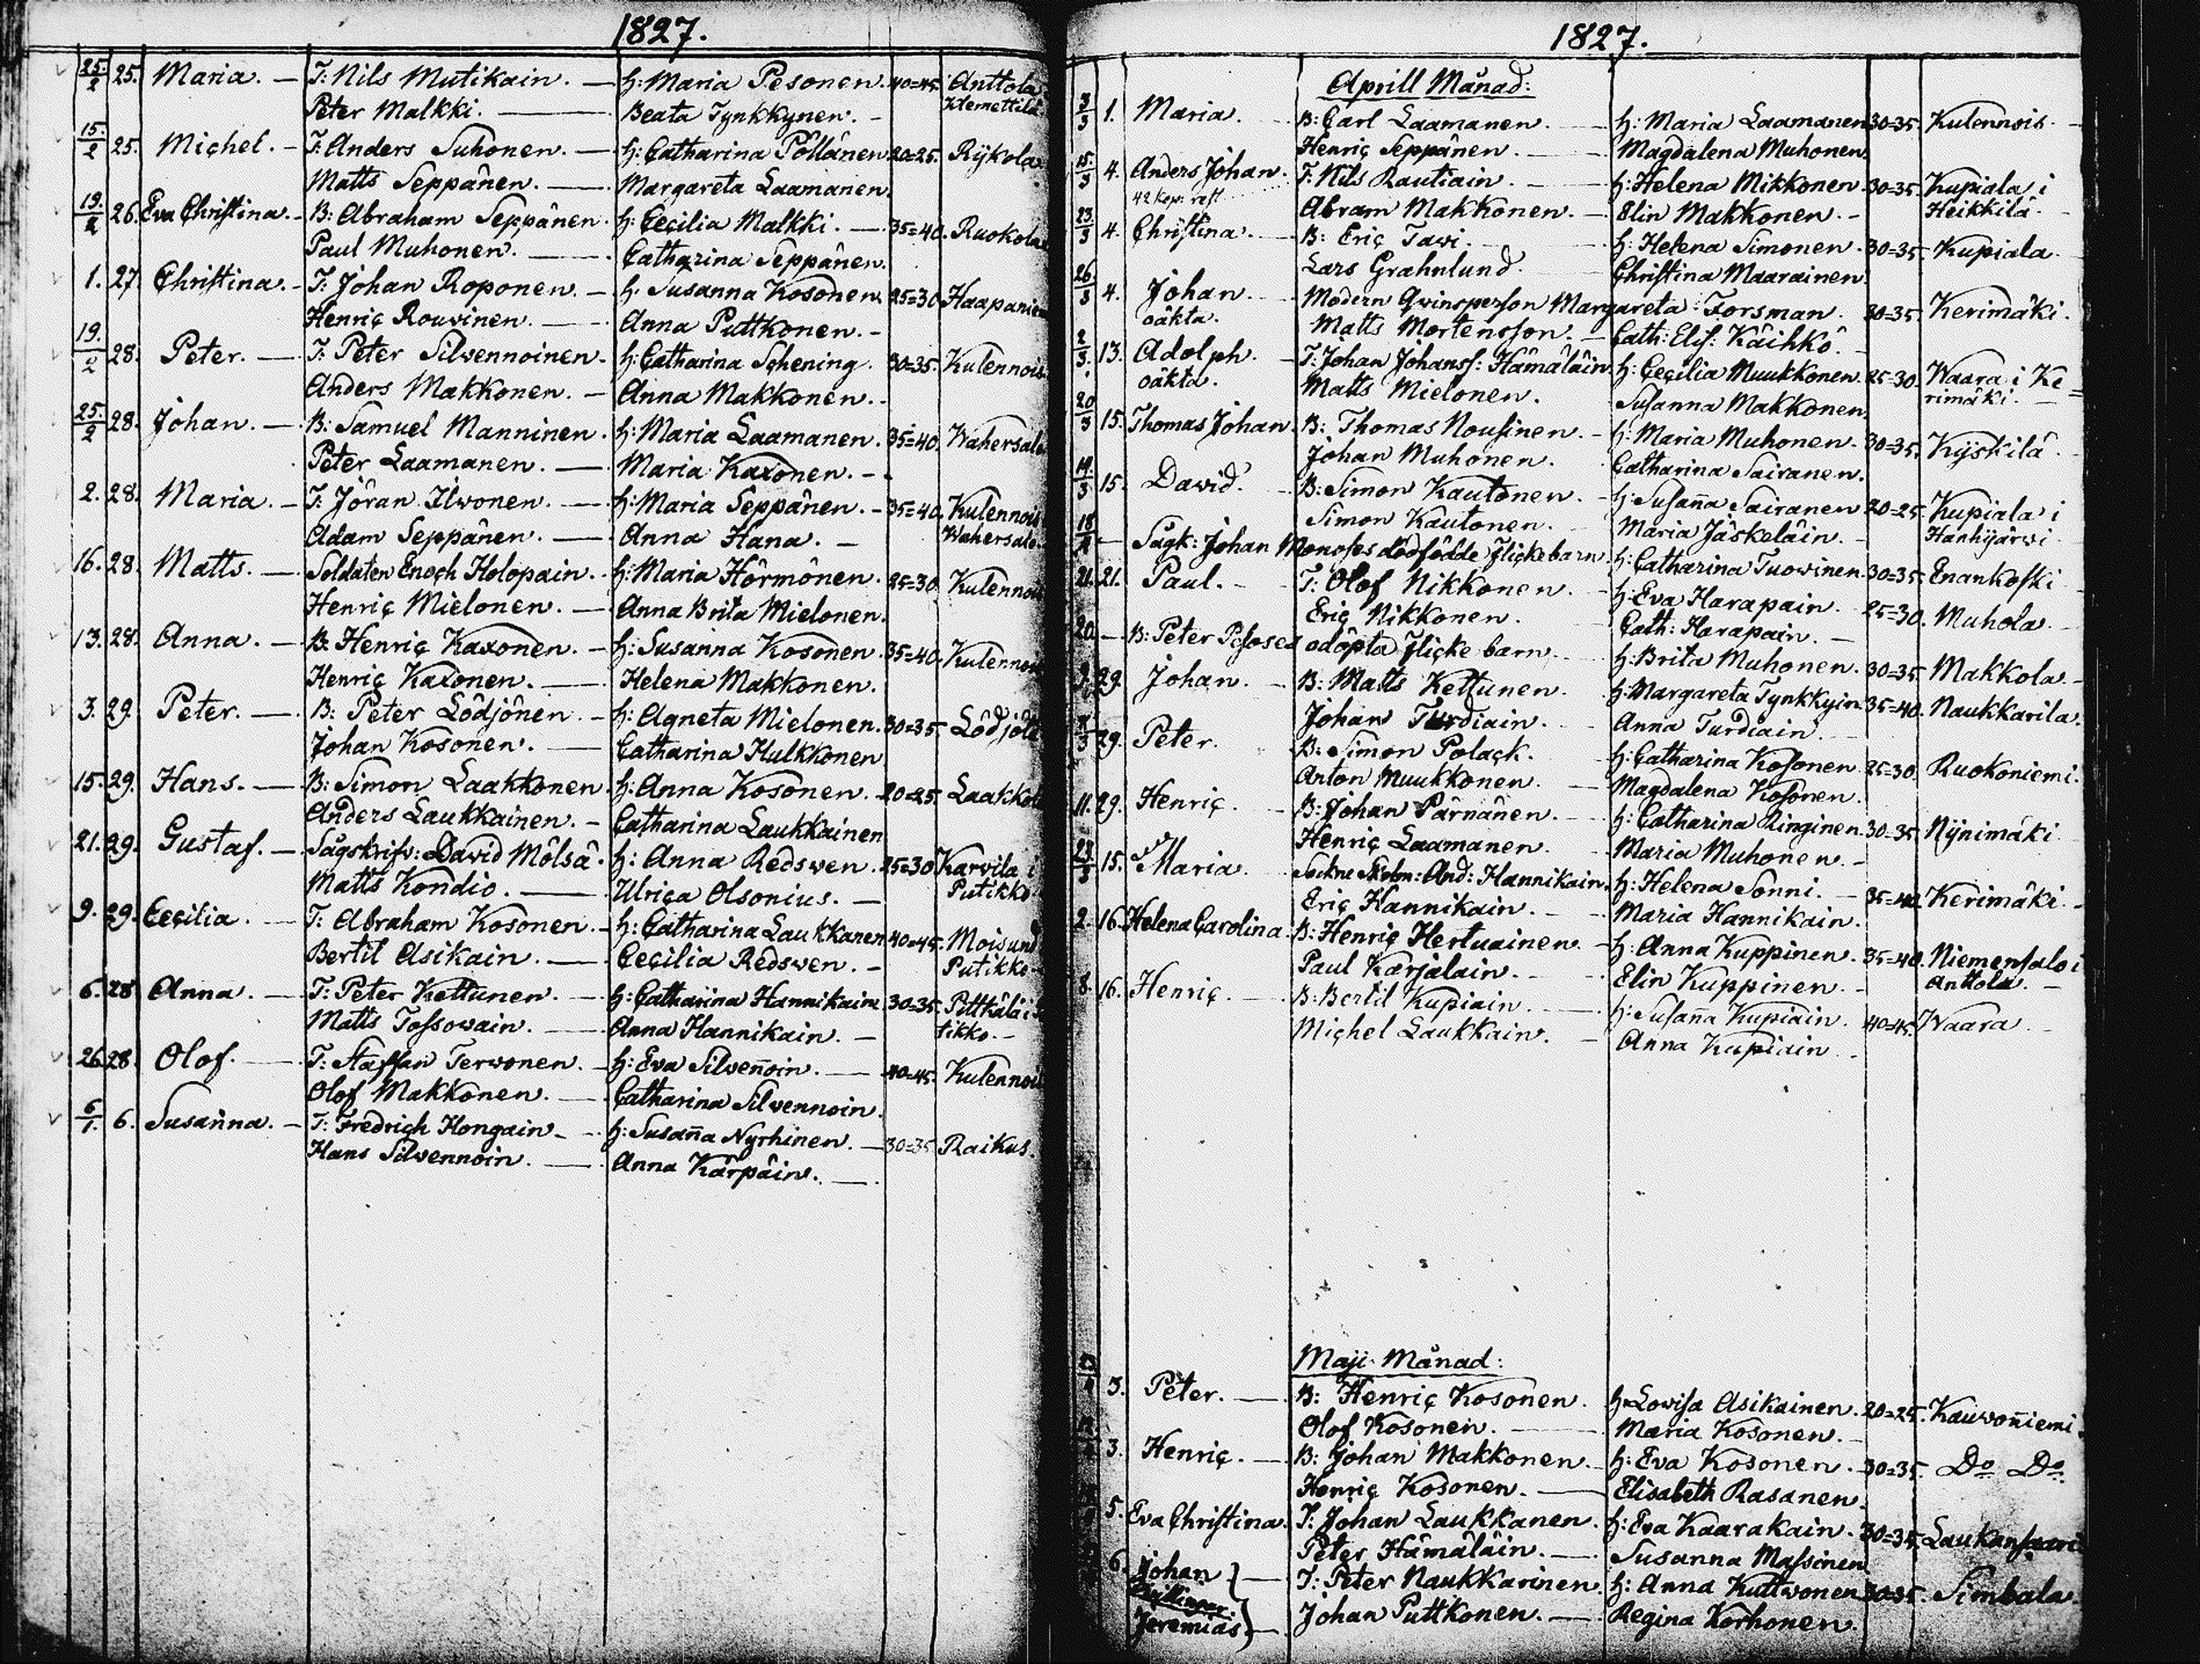 1827.
25/2 25. Maria. — T: Nils Mutikain. — H: Maria Pesonen. 40=45. Anttola
Peter Malkki. — Beata Tynkkynen. — Klemettilä
15/2 25. Michel. — T: Anders Suhonen. — H: Catharina Pöllänen 20=25. Rÿkola
Matts Seppänen. — Margareta Laamanen.
19/2 26. Eva Christina. — B: Abraham Seppänen. H: Cecilia Malkki. — 35=40. Ruokola
Paul Muhonen. — Catharina Seppänen.
1. 27. Christina. — T: Johan Roponen. — H: Susanna Kosonen 25=30 Haapaniem
Henric Rouvinen. — Anna Puttkonen. —
19/2 28. Peter. — T: Peter Silwennoinen. H: Catharina Schening. 30=35. Kulennois
Anders Makkonen. — Anna Makkonen. —
25/2 28. Johan. — B: Samuel Manninen. H: Maria Laamanen. 35=40. Wahersalo
Peter Laamanen. — Maria Kaxonen. —
2. 28. Maria. — T: Jöran Ilwonen. — H: Maria Seppänen. — 35=40. Kulennois
Adam Seppänen. — Anna Hana. — Wahersalo
16. 28. Matts. — Soldaten Enoch Holopain. H: Maria Hörmönen. 25=30. Kulennois
Henric Mielonen. — Anna Brita Mielonen.
13. 28. Anna. — B: Henric Kaxonen. — H: Susanna Kosonen. 35=40. Kulennois
Henric Kaxonen. — Helena Makkonen.
3. 29. Peter. — B: Peter Lödjönen. — H: Agneta Mielonen. 30=35. Lödjölä
Johan Kosonen. — Catharina Hulkkonen
15. 29. Hans. — B: Simon Laakkonen. H: Anna Kosonen. 20=25. Laakkola
Anders Laukkainen. — Catharina Laukkainen
21. 29. Gustaf. — Sågskrifv: David Mölsä. H: Anna Redswen. 25=30 Karvila i
Matts Kondio. — Ulrica Olsonius. — Putikko
9. 29. Cecilia. — T: Abraham Kosonen. — H: Catharina Laukkanen 40=45. Mois und
Bertil Asikain. — Cecilia Redswen. — Putikko
6. 28 Anna. — T: Peter Kettunen. — H: Catharina Hannikain 30=35. Pittkälä i
Matts Tossowain. — Anna Hannikain. — tikko. —
26. 28 Olof. — T: Staffan Terwonen. — H: Eva Silwen̄oin. — 40=45. Kulennois
Olof Makkonen. — Catharina Silwennoin.
6/1. 6. Susan̄na. — T: Fredrich Hongain. — H: Susan̄a Nyrhinen. — 30=35 Raikus.
Hans Silwennoin. — Anna Kärpäin. —
1827.
Aprill Månad:
3/3 1. Maria. B: Carl Laamanen. — H: Maria Laamanen 30=35. Kulennois
Henric Seppänen. — Magdalena Muhonen.
15/3 4. Anders Johan. T: Nils Rautiain. — H: Helena Mikkonen. 30=35. Kupiala i
42 Kop: Abram Makkonen. — Elin Makkonen. — Heikkilä.
23/3 4. Christina. — B: Eric Tawi. — H: Helena Simonen. 30=35. Kupiala
Lars Grahnlund. Christina Maarainen.
26/3 4. Johan. Modern Qwinsperson Margareta Forsman. 30=35. Kerimäki.
oäkta. Matts Mortensson. — Cath: Elis: Käihkö. —
2/3. 13. Adolph. — T: Johan Johanss: Hämäläin. H: Cecilia Muukkonen. 25=30. Waara i Ke=
oäkta. Matts Mielonen. Susanna Makkonen. rimäki. —
20/3 15. Thomas Johan. B: Thomas Nousinen. — H: Maria Muhonen. 30=35. Kÿskilä
Johan Muhonen. Catharina Sairanen.
14/3 15. David. — B: Simon Kautonen. — H: Susan̄a Sairanen 20=25. Kupiala i
Simon Kautonen. Maria Jäskeläin. — Hanhijärwi
— Sågk: Johan Monoses dödfödde Flickebarn. H: Catharina Tuowinen. 30=35. Enankoski
21. 21. Paul. — T: Olof Nikkonen. — H: Eva Harapain. 25=30. Muhola
Eric Nikkonen. Cath: Harapain. —
20. — B: Peter Pososes odöpta Flicke barn. — H: Brita Muhonen. 30=35 Makkola
29. Johan. — B: Matts Kettunen. H: Margareta Tynkkyin. 35=40. Naukkarila.
Johan Turdiain. — Anna Turdiain.
29. Peter. B: Simon Polack. — H: Catharina Kosonen 25=30. Ruokoniemi.
Anton Muukkonen. — Magdalena Kosonen.
11. 29. Henric. — B: Johan Pärnänen. — H: Catharina Ringinen. 30=35 Nÿnimäki
Henric Laamanen. Maria Muhonen. —
23/3 15. Maria. Sockne Skrōm: And: Hannikain. H: Helena Sonni. — 35=40. Kerimäki. —
Eric Hannikain. — Maria Hannikain.
2. 16. Helena Carolina. B: Henric Hertuainen. — H: Anna Kuppinen. 35=40. Niemensalo i
Paul Karjalain. — Elin Kuppinen. — Anttola. —
8. 16. Henric. — B: Bertil Kupiain. — H: Susan̄a Kupiain. 40=45. Waara.
Michel Laukkain. — Anna Kupiain. —
Maji Månad:
3. Peter. — B: Henric Kosonen. H: Lovisa Asikainen. 20=25. Kauvon̄iemi
Olof Kosonen. — Maria Kosonen. —
3. Henric. — B: Johan Makkonen. — H: Eva Kosonen. 30=35. Do Do
Henric Kosonen. — Elisabeth Rasanen.
5. Eva Christina. T: Johan Laukkanen. H: Eva Kaarakain. 30=35. Laukansaari
Peter Hämäläin. — Susanna Massinen
6. Johan } — T: Peter Naukkarinen. H: Anna Kuttwonen 30=35. Simbala.
Jeremias } — Johan Puttkonen. — Regina Korhonen.